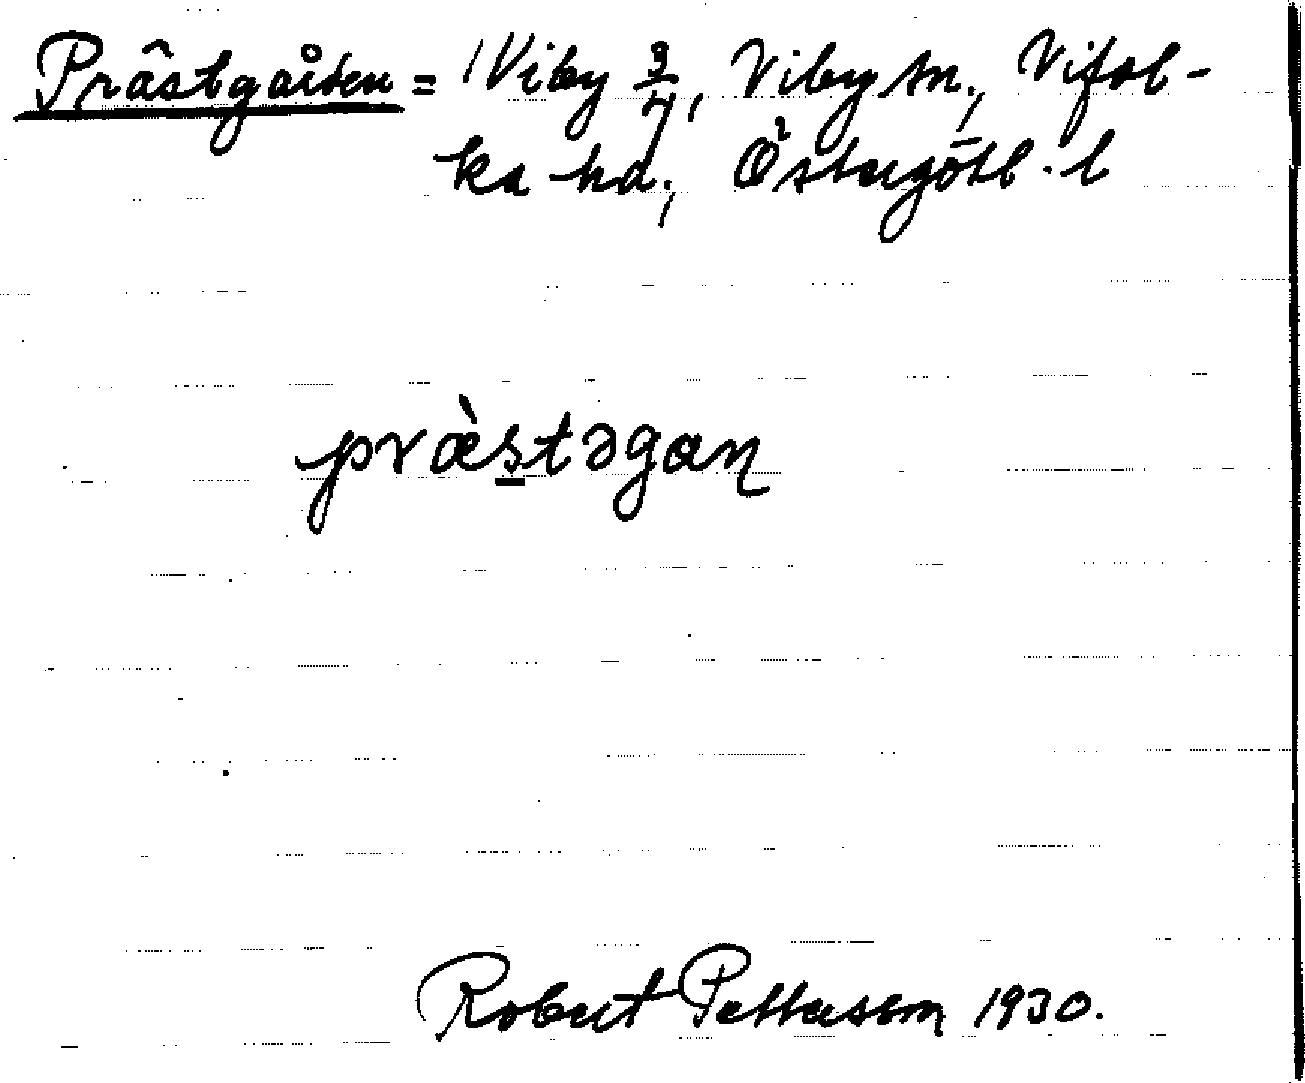 Prästgården = Viby 3/4, Viby sn., Vifol-
ka hd., Östergötl. l
præ̀s̲təgaɳ
Robert Pettersson 1930.